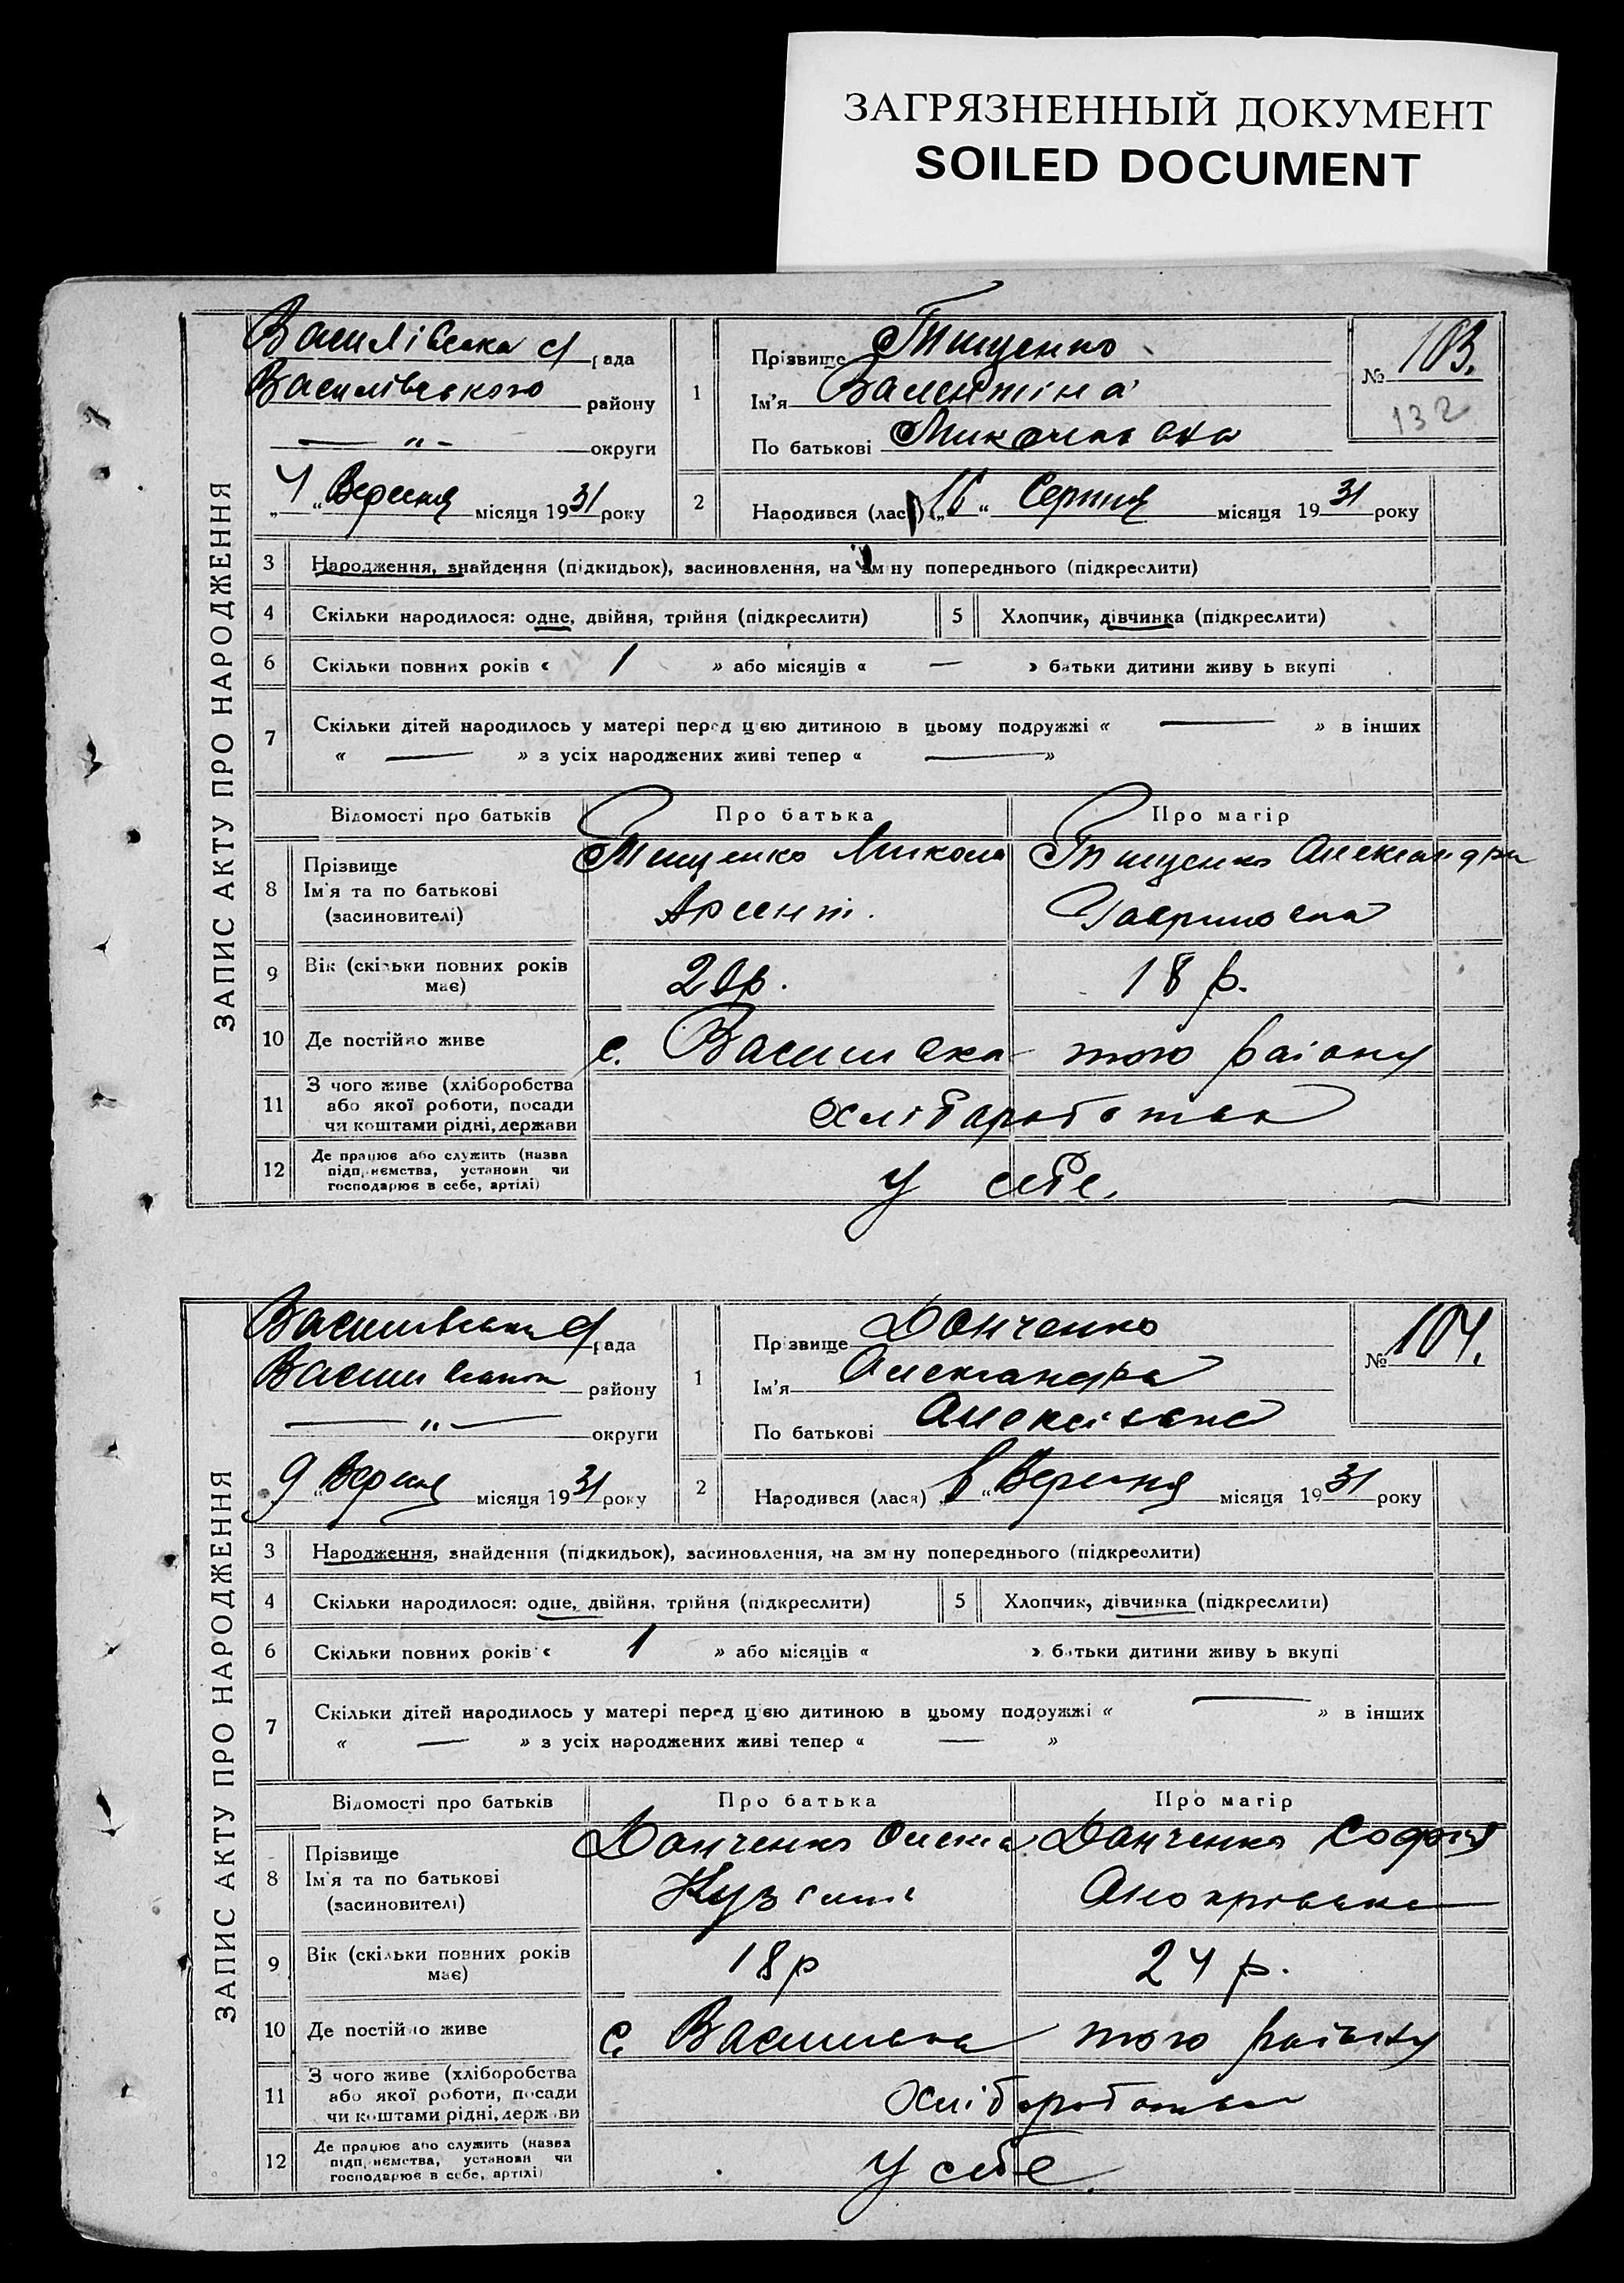 ЗАГРЯЗНЕННЫЙ ДОКУМЕНТ
SOILED DOCUMENT
ЗАПИС АКТУ ПРО НАРОДЖЕННЯ
Василівська с/рада
Василівського району
— " — округи
„4“ Вересня місяця 1931 року
1
Прізвище Тищенко
Ім'я Валентіна
По батькові Миколаевна
№ 103.
132
2
Народився (лася) „16“ Серпня місяця 1931 року
3 Народження, знайдення (підкидьок), засиновлення, на зміну попереднього (підкреслити)
4 Скільки народилося: одне, двійня, трійня (підкреслити) 5 Хлопчик, дівчинка (підкреслити)
6 Скільки повних років « 1 » або місяців « — » батьки дитини живуть вкупі
7 Скільки дітей народилось у матері перед цією дитиною в цьому подружжі « — » в інших
« — » з усіх народжених живі тепер « — »
Відомості про батьків Про батька Про матір
8 Прізвище
Ім'я та по батькові
(засиновителі)
Тищенко Микола
Арсент.
Тищенко Александра
Гавриловна
9 Вік (скільки повних років
має)
20р. 18 р.
10 Де постійно живе с. Василівка того району
11 З чого живе (хліборобства
або якої роботи, посади
чи коштами рідні, держави
хліборобство
12 Де працює або служить (назва
підприємства, установи чи
господарює в себе, артілі)
у себе.
ЗАПИС АКТУ ПРО НАРОДЖЕННЯ
Василівська с/рада
Василівського району
— " — округи
„9“ Вересня місяця 1931 року
1
Прізвище Данченко
Ім'я Александра
По батькові Алексівна
№ 104.
2
Народився (лася) „6“ Вересня місяця 1931 року
3 Народження, знайдення (підкидьок), засиновлення, на зміну попереднього (підкреслити)
4 Скільки народилося: одне, двійня, трійня (підкреслити) 5 Хлопчик, дівчинка (підкреслити)
6 Скільки повних років « 1 » або місяців « » батьки дитини живуть вкупі
7 Скільки дітей народилось у матері перед цією дитиною в цьому подружжі « — » в інших
« — » з усіх народжених живі тепер « — »
Відомості про батьків Про батька Про матір
8 Прізвище
Ім'я та по батькові
(засиновителі)
Данченко
Данченко Софія
9 Вік (скільки повних років
має)
18р 24 р.
10 Де постійно живе с. Василівка того району
11 З чого живе (хліборобства
або якої роботи, посади
чи коштами рідні, держави
Хліборобство
12 Де працює або служить (назва
підприємства, установи чи
господарює в себе, артілі)
у себе.